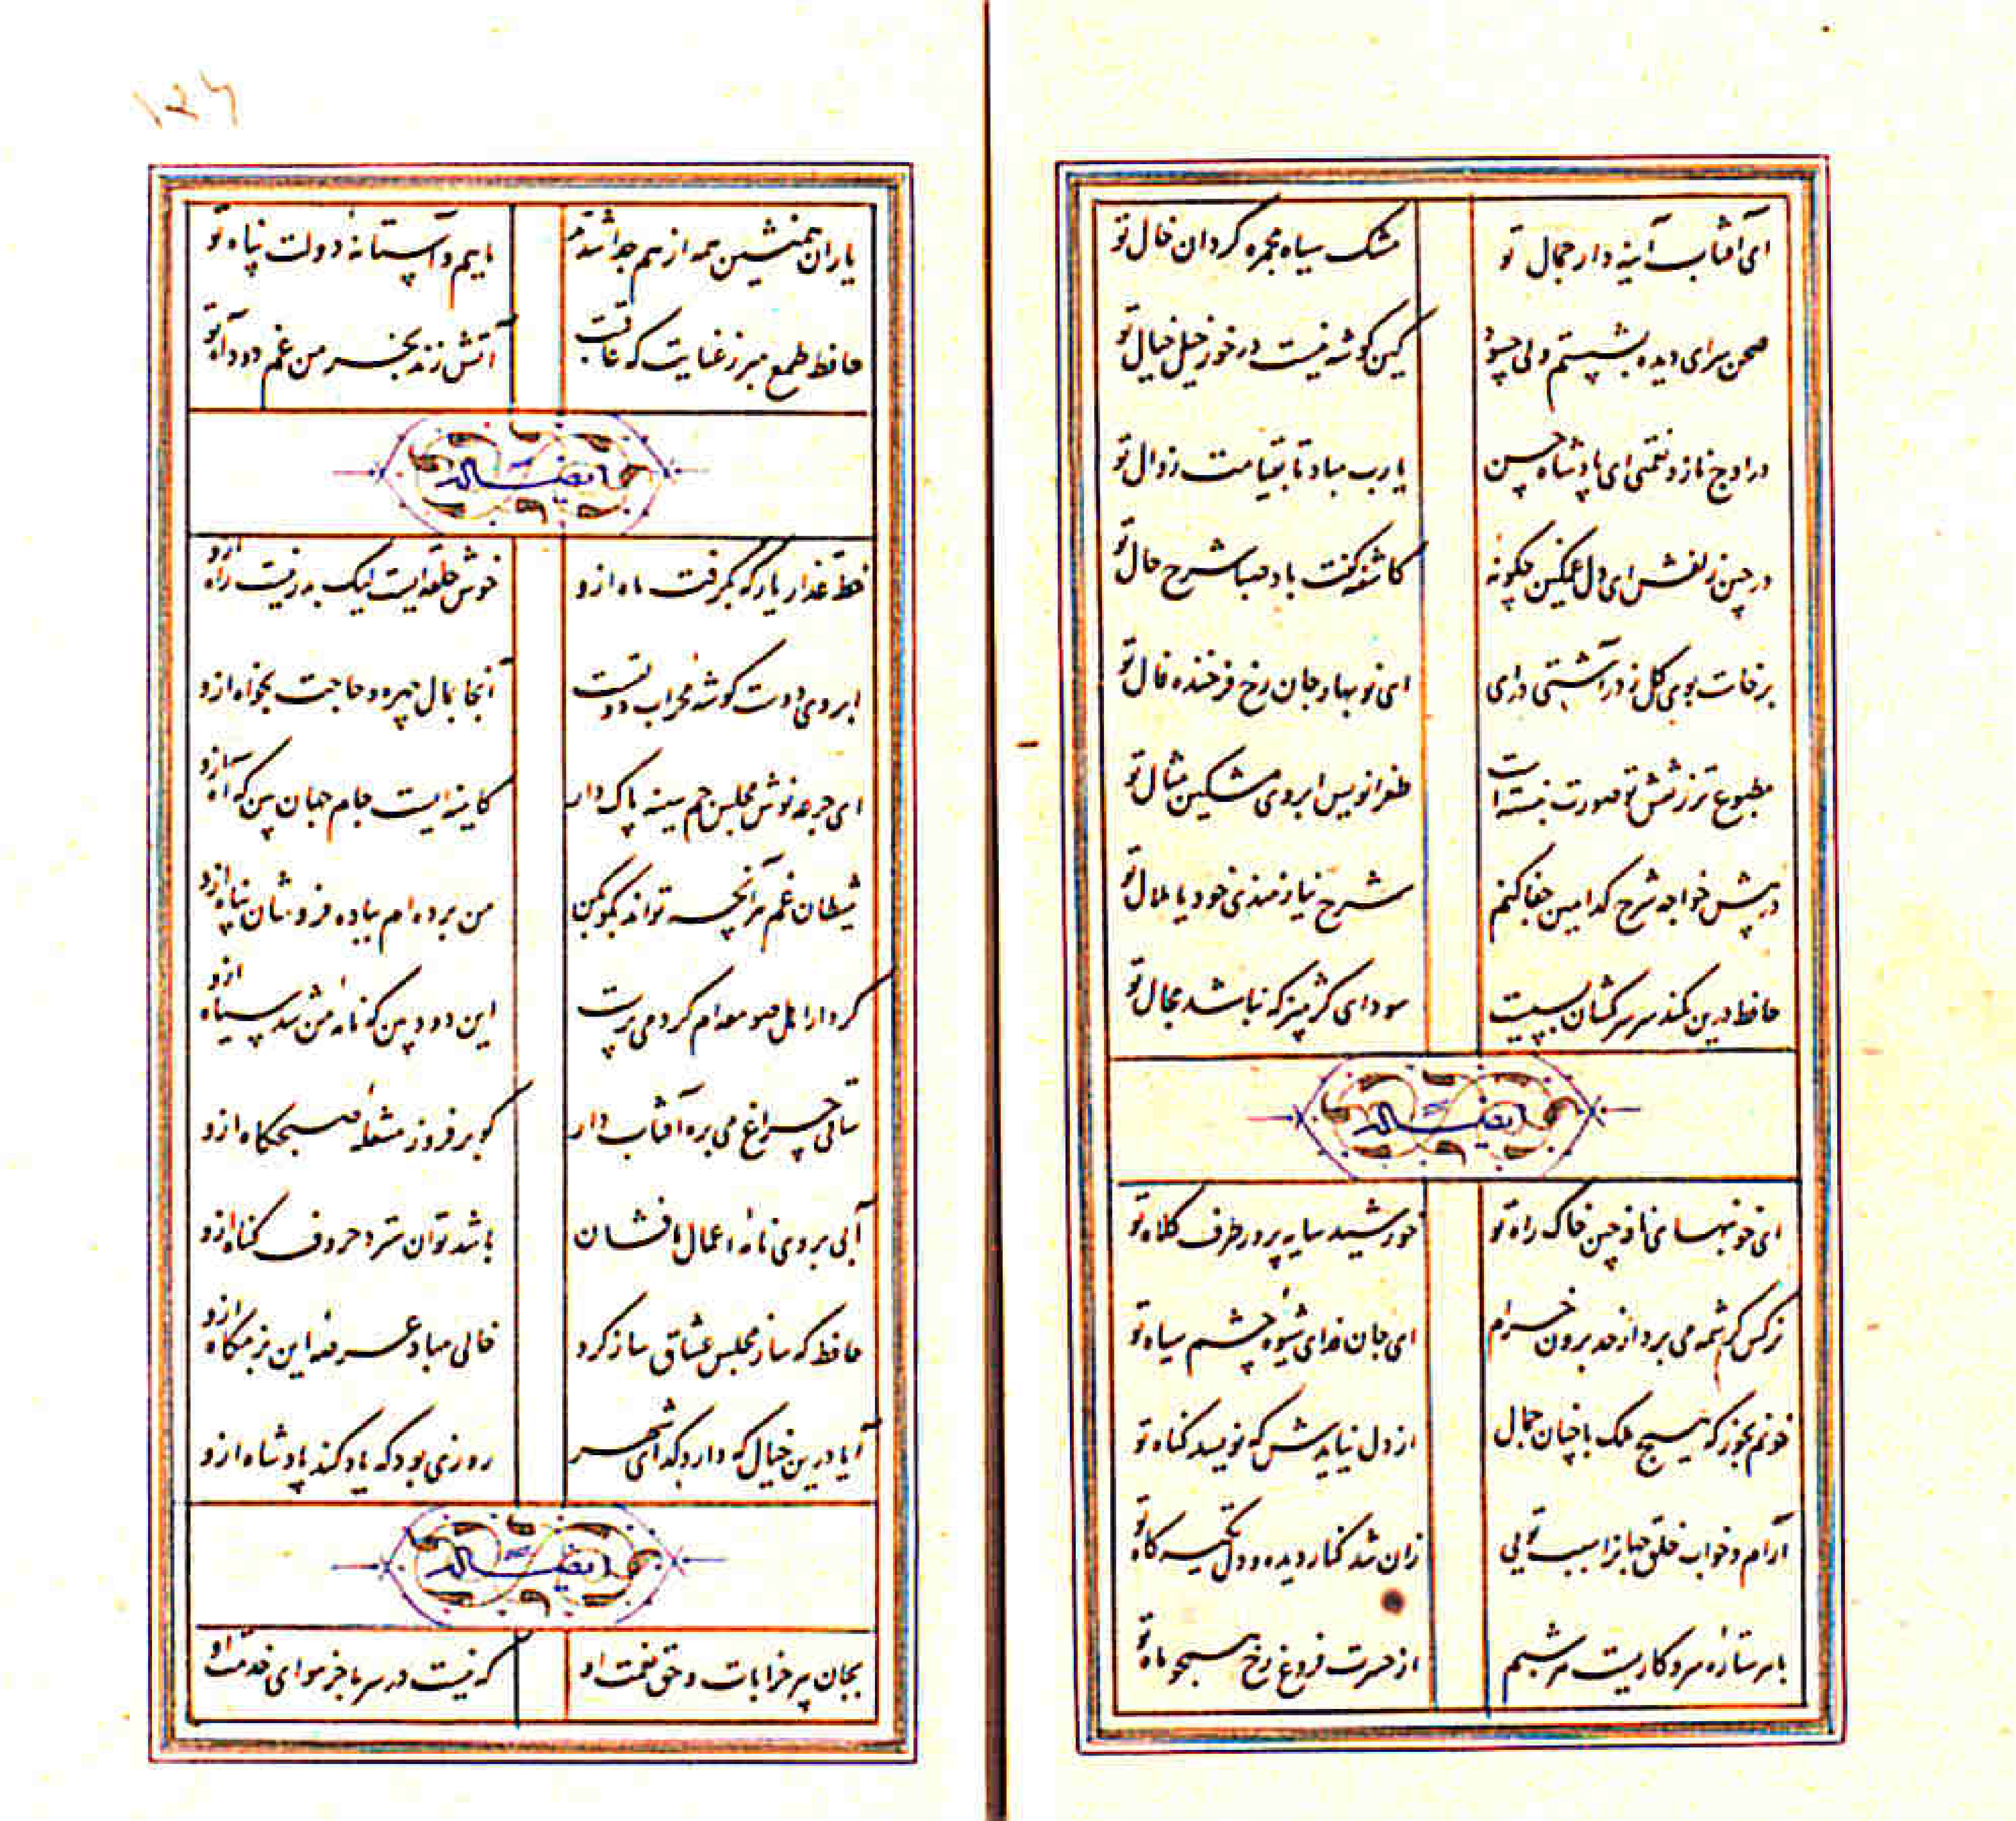 ای آفتاب آینه دار جمال تو مشک سیاه مجمره گردان خال تو
صحن سرای دیده بشستم ولی چسود کین گوشه نیست در خور خیل خیال تو
در اوج ناز و نعمتی ای پادشاه حسن یارب مباد تا بقیامت زوال تو
در چین زلفش ای دل مسکین چگونه کاشفته گفت باد صبا شرح حال تو
برخاست بوی گل ز در آشتی درای ای نوبهار جان رخ فرخنده فال تو
مطبوع تر ز نقش تو صورت نبسته است طغرا نویس ابروی مشکین مثال تو
در پیش خواجه شرح کدامین جفا کنم شرح نیازمندی خود یا ملال تو
حافظ درین کمند سر سرکشان بسیست سودای کژ مپز که نباشد مجال تو
ایضا له
ای خونبهای نافه چین خاک راه تو خورشید سایه پرور طرف کلاه تو
نرگس کرشمه می برد از حد برون خرام ای جان فدای شیوه چشم سیاه تو
خونم بخور که هیچ ملک با چنان جمال از دل نیایدش که نویسد گناه تو
آرام و خواب خلق جهانرا سبب تویی زان شد کنار دیده و دل تکیه گاه تو
با هر ستاره سر و کاریست هر شبم از حسرت فروغ رخ همچو ماه تو
۱۲۶
یاران همنشین همه از هم جدا شدند ماییم و آستانه دولت پناه تو
حافظ طمع مبر ز عنایت که عاقبت آتش زند بخرمن غم دود آه تو
ایضا له
خط عذار یار که بگرفت ماه ازو خوش حلقه ایست لیک بدر نیست راه ازو
ابروی دوست گوشه محراب دولتست آنجا بمال چهره و حاجت بخواه ازو
ای جرعه نوش مجلس جم سینه پاک دار کاینه ایست جام جهان بین که آه ازو
شیطان غم هر آنچه تواند بگو بکن من برده ام بباده فروشان پناه ازو
کردار اهل صومعه ام کرد می پرست این دود بین که نامه من شد سیاه ازو
ساقی چراغ می بره آفتاب دار گو بر فروز مشعله صبحگاه ازو
آبی بروی نامه اعمال ما فشان باشد توان سترد حروف گناه ازو
حافظ که ساز مجلس عشاق ساز کرد خالی مباد عرصه این بزمگاه ازو
آیا درین خیال که دارد گدای شهر روزی بود که یاد کند پادشاه ازو
ایضا له
بجان پیر خرابات و حق نعمت او که نیست در سر ما جز هوای خدمت او